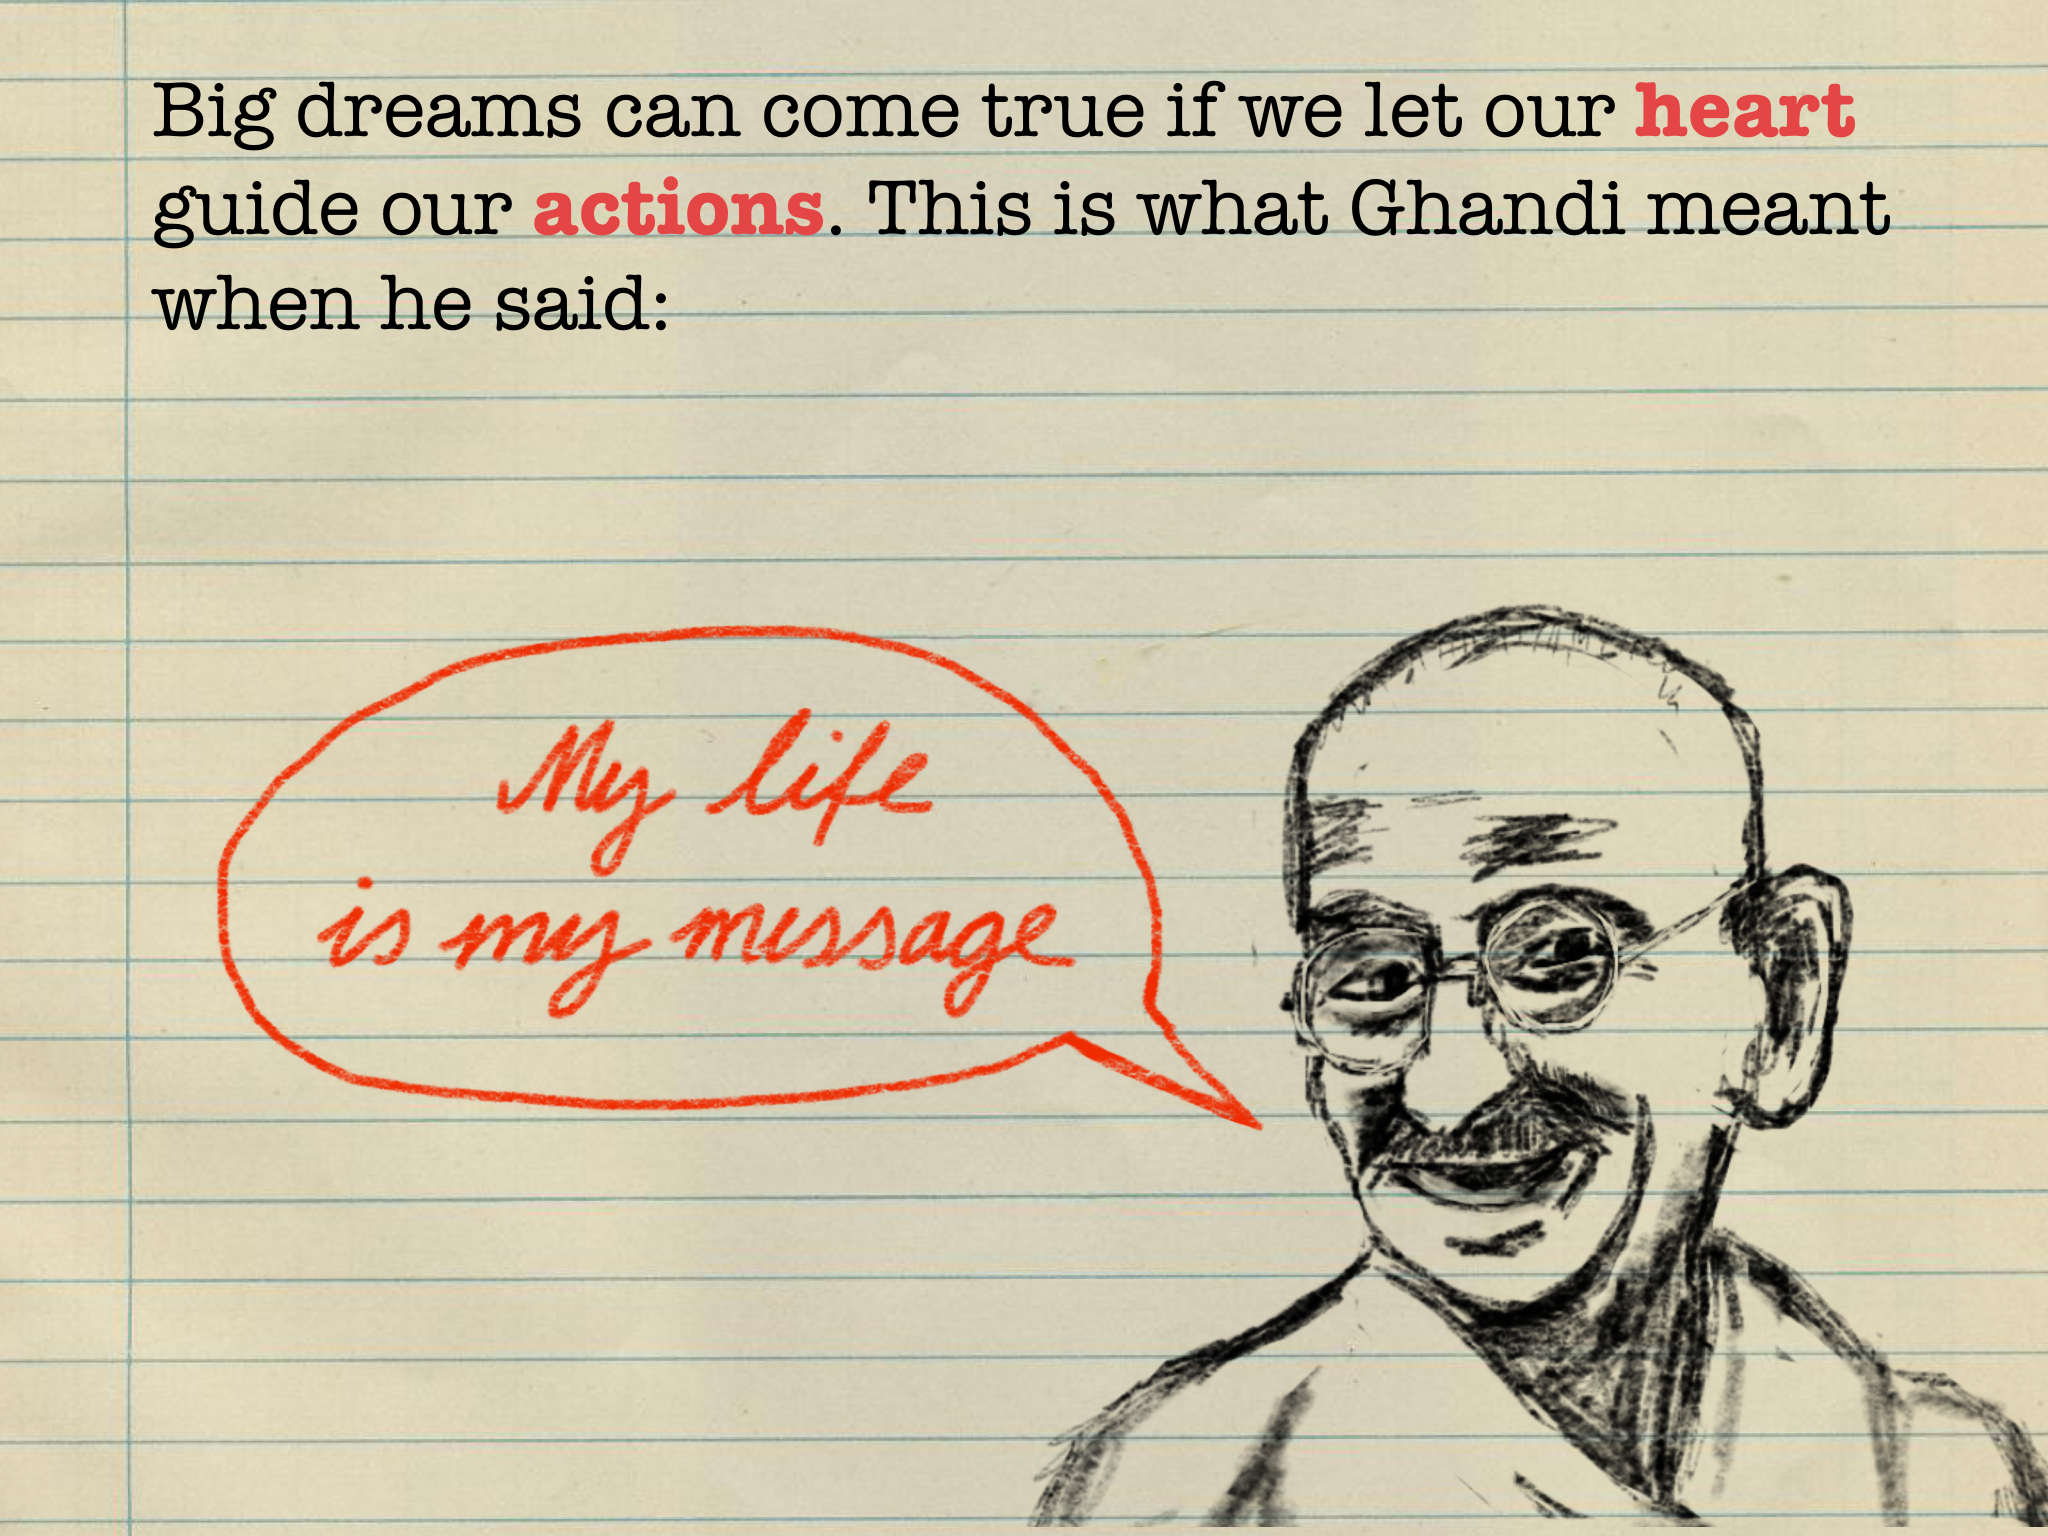 Big dreams can come true if we let our heart
guide our actions. This is what Ghandi meant
when he said:
My life
is my message